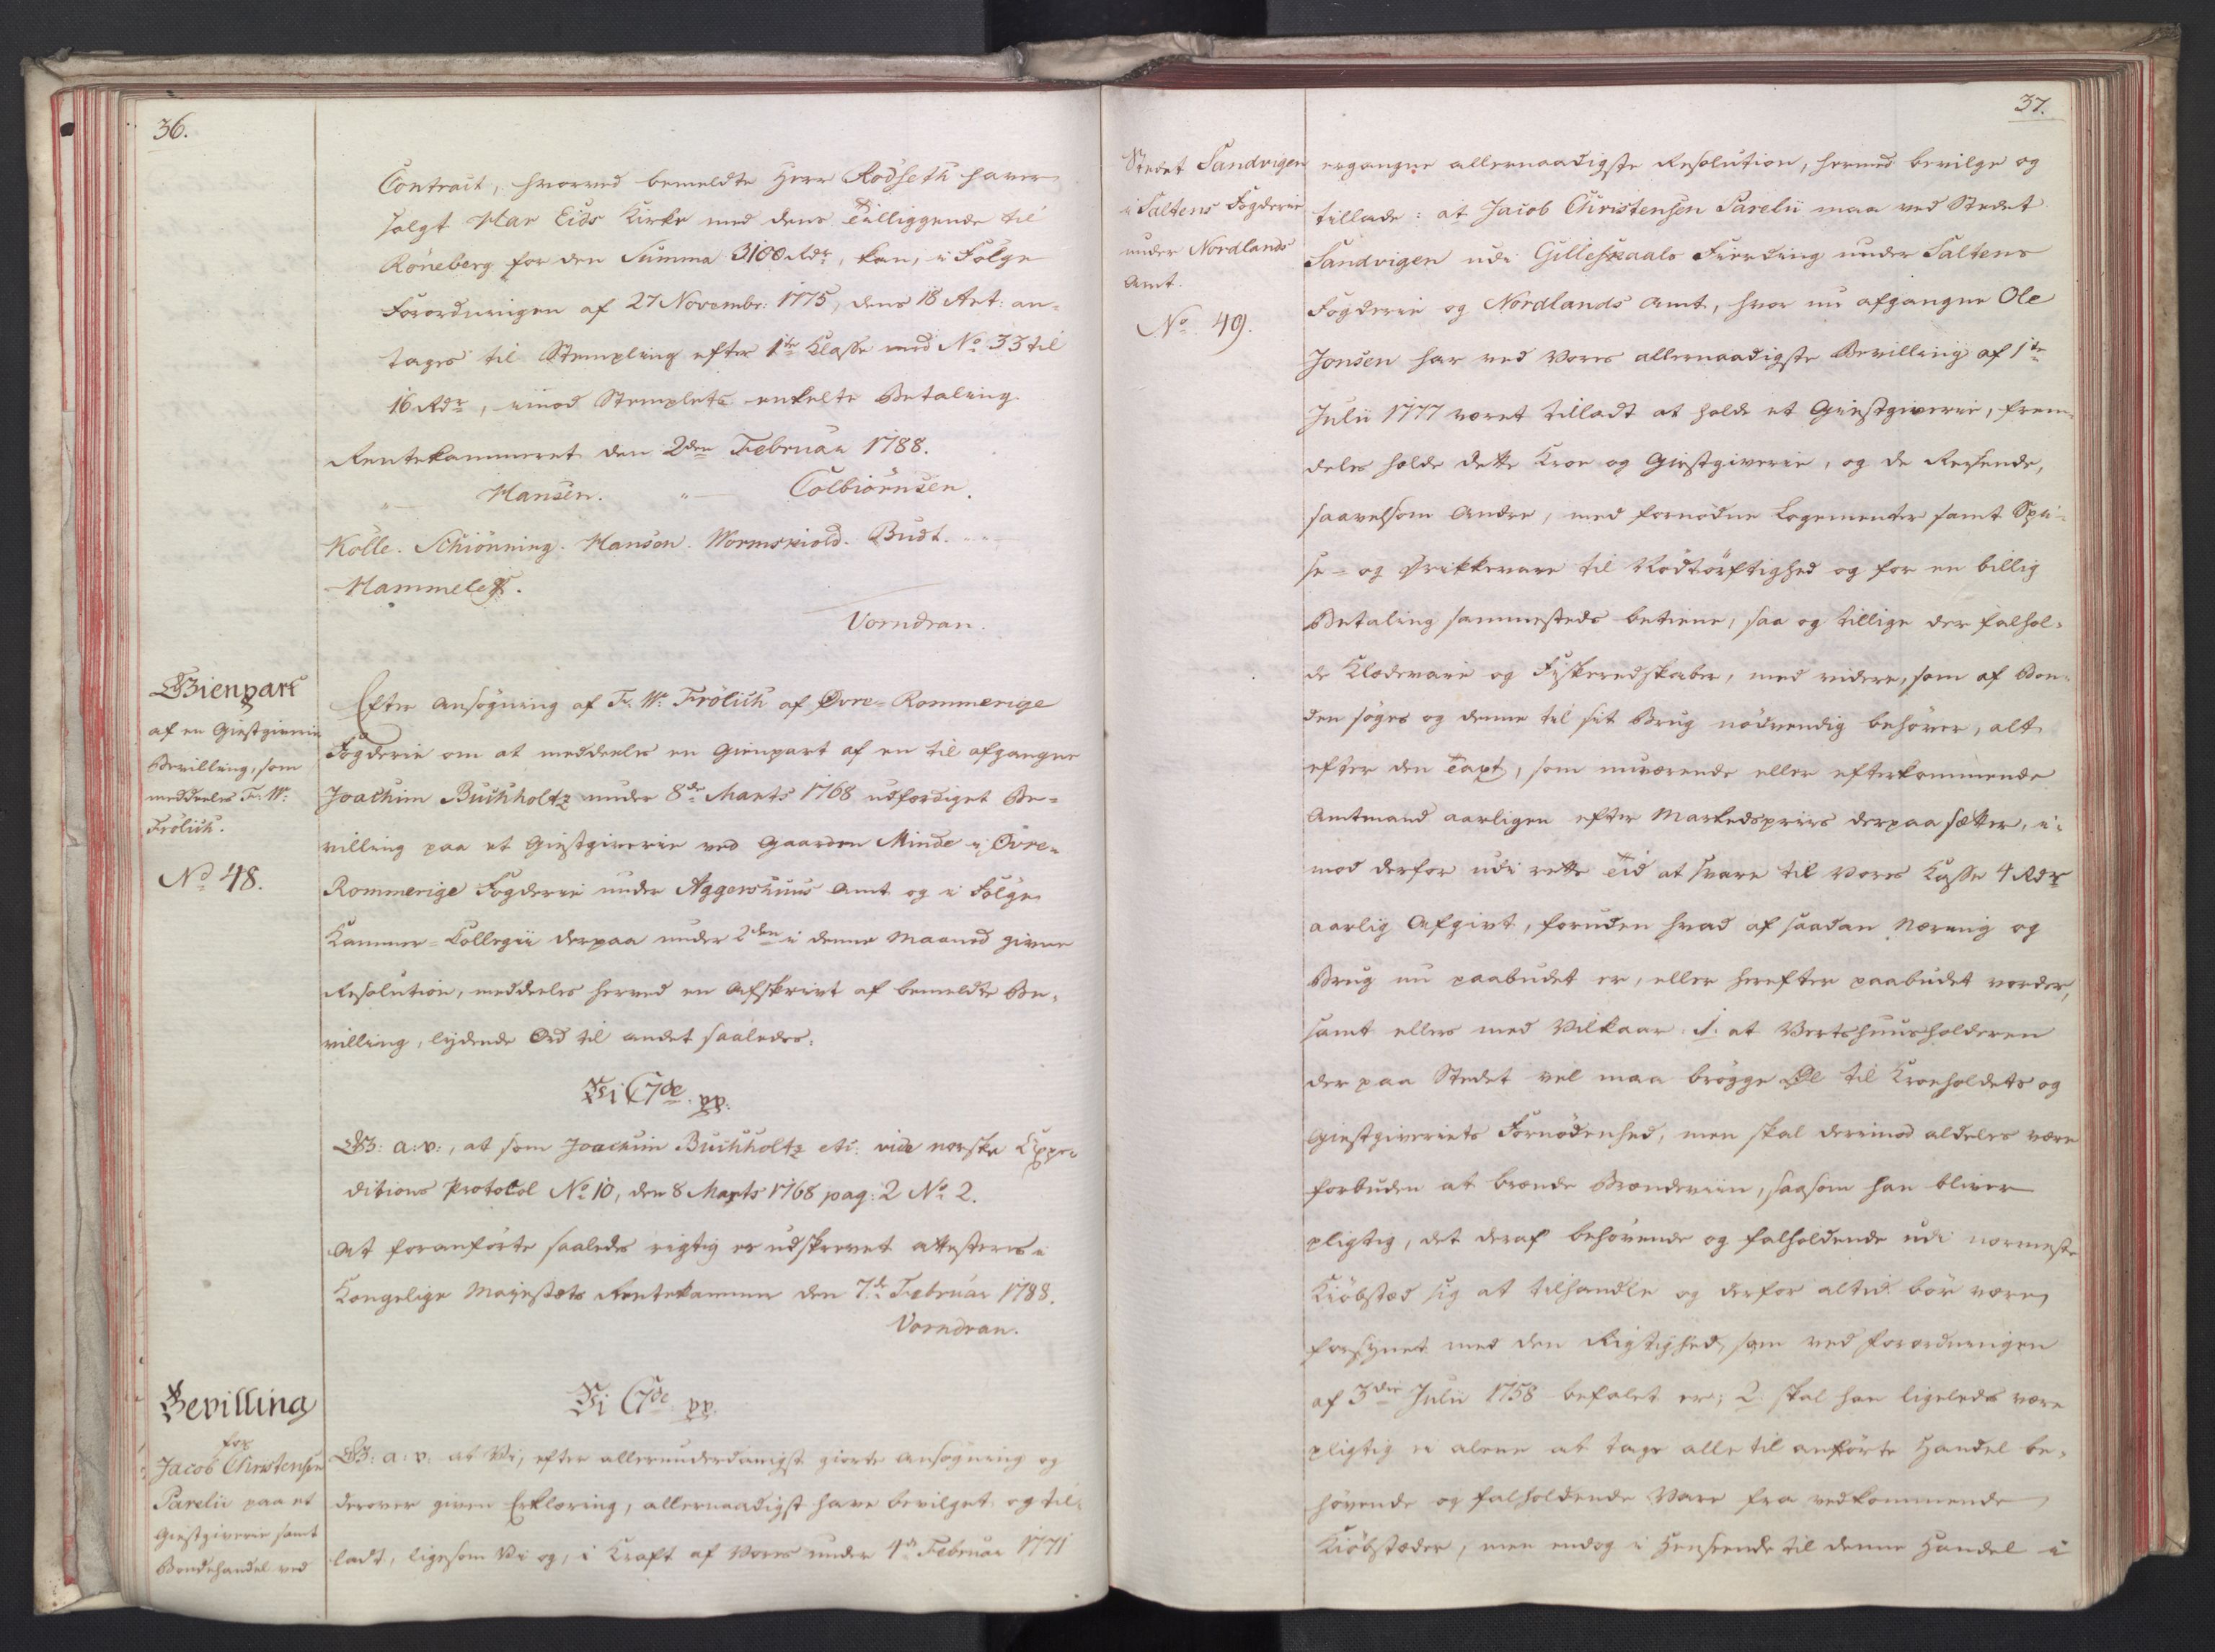 36.
Contract, hvorved bemeldte Herr Rödseth haver
solgt Mar Eids Kirke med dens Tilliggende til
Röneberg for den Summa 3100 Rdr, kan, i Følge
Forordningen af 27 Novembr: 1775, dens 18 Art: an-
tages til Stempling efter 1ste Klasse med No 33 til
16 Rdr, imod Stemplets enkelte Betaling.
Rentekammeret den 2den Februar 1788.
Hansen. Colbiörnsen.
Kölle. Schiönning. Hanson. Wormskiold. Budt.
Hammeleff.
Vorndran.
Gienpart
af en Giestgiverie
Bevilling, som
meddeeles F. W:
Frölich.
No 48.
Efter Ansøgning af F. W. Frölich af Øvre-Rommerige
Fogderie om at meddeeles en Gienpart af en til afgangne
Joachim Buchholtz under 8de Marts 1768 udfærdiget Be-
villing paa et Giestgiverie ved Gaarden Minde i Øvre-
Rommerige Fogderie under Aggershuus Amt og i Følge
Kammer-Collegii derpaa under 2den i denne Maaned givne
Resolution, meddeeles herved en Afskrivt af bemeldte Be-
villing, lydende Ord til andet saaledes:
Vi C7de pp:
GB: a: v:, at som Joachim Buchholtz etc: vide norske Expe-
ditions Protokol No 10, den 8 Marts 1768 pag: 2 No 2.
At foranførte saaledes rigtig er udskrevet attesteres i
Kongelige Majestæts Rentekammer den 7de Februar 1788.
Vorndran.
Bevilling
for
Jacob Christensen
Parelii paa et
Giestgiverie samt
Bondehandel ved
Vi C7de pp.
GB: a: v: at Vi, efter allerunderdanigst giorte Ansøgning og
derover given Erklæring, allernaadigst have bevilget og til-
ladt, ligesom Vi og, i Kraft af Vores under 4de Februar 1771
37.
Stedet Sandvigen
i Saltens Fogderie
under Nordlands
Amt.
No 49.
ergangne allernaadigste Resolution, hermed bevilge og
tillade: at Jacob Christensen Parelii maa ved Stedet
Sandvigen udi Gilleskaals Fierding under Saltens
Fogderie og Nordlands Amt, hvor nu afgangne Ole
Jonsen har ved Vores allernaadigste Bevilling af 1ste
Julii 1777 været tilladt at holde et Giestgiverie, frem-
deles holde dette Kroe og Giestgiverie, og de Reisende,
saavelsom Andre, med fornødne Logementer samt Spi-
se- og Drikkevare til Nødtørftighed og for en billig
Betaling sammesteds betiene, saa og tillige der falhol-
de Klædevare og Fiskeredskaber, med videre, som af Bon-
den søges og denne til sit Brug nødvendig behøver, alt
efter den Taxt, som nuværende eller efterkommende
Amtmand aarligen efter Markedspriis derpaa sætter, i-
mod derfor udi rette Tid at svare til Vores Kasse 4 Rdr
aarlig Afgivt, foruden hvad af saadan Næring og
Brug nu paabudet er, eller herefter paabudet vorder,
samt ellers med Vilkaar: 1: at Vertshuusholderen
der paa Stedet vel maa brøgge Øl til Kroeholdets og
Giestgiveriets Fornødenhed, men skal derimod aldeles være
forbuden at brænde Brændeviin, saasom han bliver
pligtig, det deraf behøvende og falholdende udi nærmeste
Kiøbstæd sig at tilhandle og derfor altid bør være
forsynet med den Rigtighed, som ved Forordningen
af 3die Julii 1758 befalet er; 2: skal han ligeledes være
pligtig ei alene at tage alle til anførte Handel be-
høvende og falholdende Vare fra vedkommende
Kiøbstæder, men endog i Henseende til denne Handel i